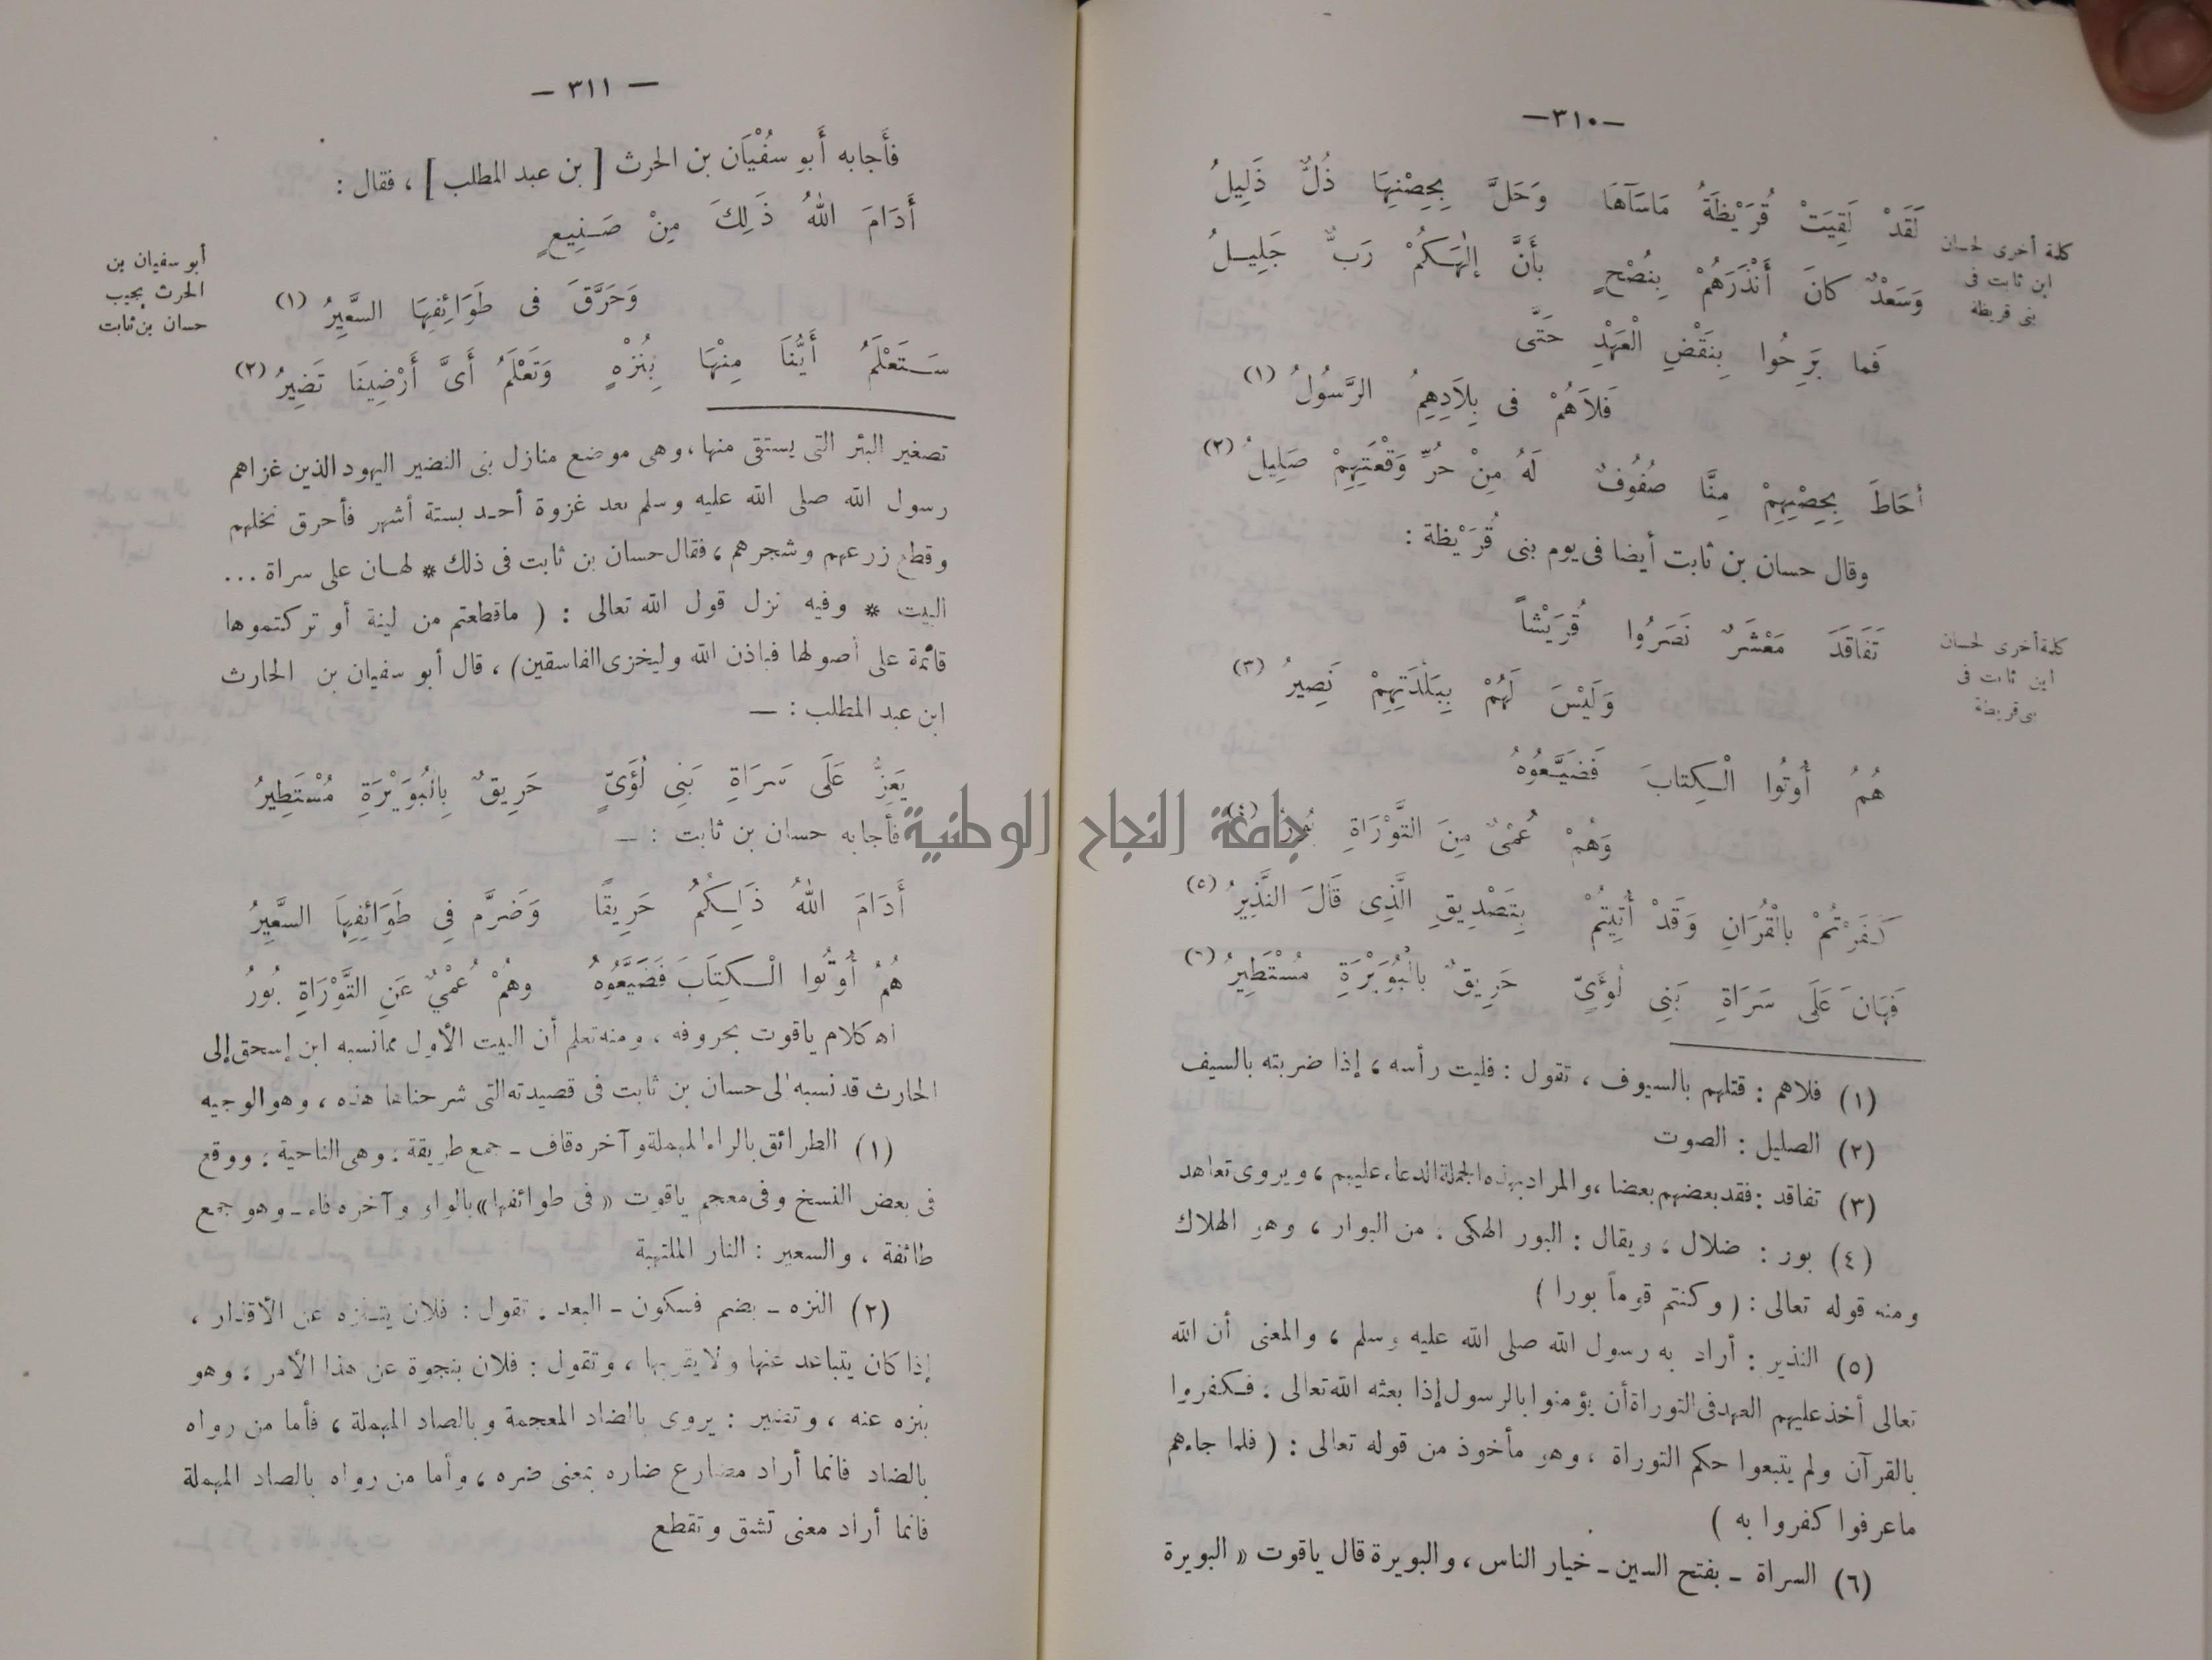 —٣١٠—
لَقَدْ لَقِيَتْ قُرَيْظَةُ مَاسَآهَا وَحَلَّ بِحِصْنِهَا ذُلٌّ ذَلِيلُ
وَسَعْدٌ كانَ أَنْذَرَهُمْ بِنُصْحٍ بأَنَّ إلٰهَكُمْ رَبٌّ جَلِيلُ
كلمة أخرى لحسان
ابن ثابت فى
بنى قريظة
فَما بَرِحُوا بِنَقْضِ الْعَهْدِ حَتَّى
فَلاَهُمْ فى بِلاَدِهِمُ الرَّسُولُ (١)
أحَاطَ بِحِصْنِهِمْ مِنَّا صُفُوفٌ لَهُ مِنْ حُرِّ وَقْعَتِهِمْ صَلِيلُ (٢)
وقال حسان بن ثابت أيضا فى يوم بنى قُرَيْظة :
تَفَاقَدَ مَعْشَرٌ نَصَرُوا قُرَيْشاً
وَلَيْسَ لَهُمْ بِبَلْدَتِهِمْ نَصِيرُ (٣)
كلمة أخرى لحسان
ابن ثابت فى
بنى قريظة
هُمُ أُوتُوا الْكِتابَ فَضَيَّعُوهُ
وَهُمْ عُمْىٌ مِنَ التَّوْرَاةِ بُورُ (٤)
كَفَرْتُمْ بالْقُرَانِ وَقَدْ أُتِيتُمْ بِتَصْدِيقِ الَّذِى قَالَ النَّذِيرُ (٥)
فَهَانَ عَلَى سَرَاةِ بَنِى لُؤَىِّ حَرِيقٌ بالْبُوَيْرَةِ مُسْتَطِيرُ (٦)
(١) فلاهم : قتلهم بالسيوف ، تقول : فليت رأسه ، إذا ضربته بالسيف
(٢) الصليل : الصوت
(٣) تفاقد : فقد بعضهم بعضا ، والمراد بهذه الجملة الدعاء عليهم ، ويروى تعاهد
(٤) بور : ضلال ، ويقال : البور الهلكى ، من البوار ، وهو الهلاك
ومنه قوله تعالى : ( وكنتم قوماً بورا )
(٥) النذير : أراد به رسول الله صلى الله عليه وسلم ، والمعنى أن الله
تعالى أخذ عليهم العهد فى التوراة أن يؤمنوا بالرسول إذا بعثه الله تعالى ، فكفروا
بالقرآن ولم يتبعوا حكم التوراة ، وهو مأخوذ من قوله تعالى : ( فلما جاءهم
ماعرفوا كفروا به )
(٦) السراة - بفتح السين - خيار الناس ، والبويرة قال ياقوت « البويرة
— ٣١١ —
فأَجابه أَبو سفْيَان بن الحرث [ بن عبد المطلب ] ، فقال :
أَدَامَ اللهُ ذَلِكَ مِنْ صَنِيعٍ
وَحَرَّقَ فى طَوَائِفِهَا السَّعِيرُ (١)
أبو سفيان بن
الحرث يجيب
حسان بن ثابت
سَتَعْلَمُ أَيُّنَا مِنْهَا بِنُزْهٍ وَتَعْلَمُ أَىَّ أَرْضِينَا تَضِيرُ (٢)
تصغير البئر التى يستقى منها ، وهى موضع منازل بنى النضير اليهود الذين غزاهم
رسول الله صلى الله عليه وسلم بعد غزوة أحد بستة أشهر فأحرق نخلهم
وقطع زرعهم وشجرهم ، فقال حسان بن ثابت فى ذلك * لهان على سراة ...
البيت * وفيه نزل قول الله تعالى : ( ماقطعتم من لينة أو تركتموها
قائمة على أصولها فباذن الله وليخزى الفاسقين ) ، قال أبو سفيان بن الحارث
ابن عبد المطلب : —
يَعِزُّ عَلَى سَرَاةِ بَنِى لُؤَىٍّ حَرِيقٌ بِالْبُوَيْرَةِ مُسْتَطِيرُ
فأجابه حسان بن ثابت : —
أَدَامَ اللهُ ذَالِكُمُ حَرِيقًا وَضَرَّم فِى طَوَائِفِهَا السَّعِيرُ
هُمُ أُوتُوا الْكِتَابَ فَضَيَّعُوهُ وهُمْ عُمْىٌ عَنِ التَّوْرَاةِ بُورُ
اه كلام ياقوت بحروفه ، ومنه تعلم أن البيت الأول مما نسبه ابن إسحق إلى
الحارث قد نسبه إلى حسان بن ثابت فى قصيدته التى شرحناها هذه ، وهو الوجيه
(١) الطرائق بالراء المهملة وآخره قاف - جمع طريقة ، وهى الناحية ، ووقع
فى بعض النسخ وفى معجم ياقوت « فى طوائفها » بالواو وآخره فاء - وهو جمع
طائفة ، والسعير : النار الملتهبة
(٢) النزه - بضم فسكون - البعد ، تقول : فلان يتنزه عن الأقذار ،
إذا كان يتباعد عنها ولا يقربها ، وتقول : فلان بنجوة عن هذا الأمر ، وهو
بنزه عنه ، وتضير : يروى بالضاد المعجمة وبالصاد المهملة ، فأما من رواه
بالضاد فانما أراد مضارع ضاره بمعنى ضره ، وأما من رواه بالصاد المهملة
فانما أراد معنى تشق وتقطع
جامعة النجاح الوطنية